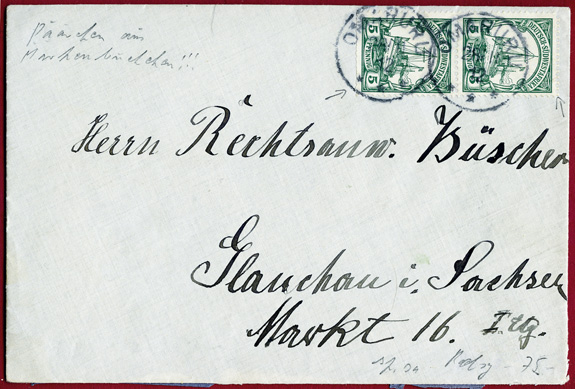 Pärchen aus
Markenheftchen!!!
OMARURU
OMARURU
5 5
5 5
DEUTSCH-SÜDWESTAFRIKA
Herrn Rechtsanw. Büscher
Glauchau i. Sachsen
Markt 16. I. Etg.
75.-